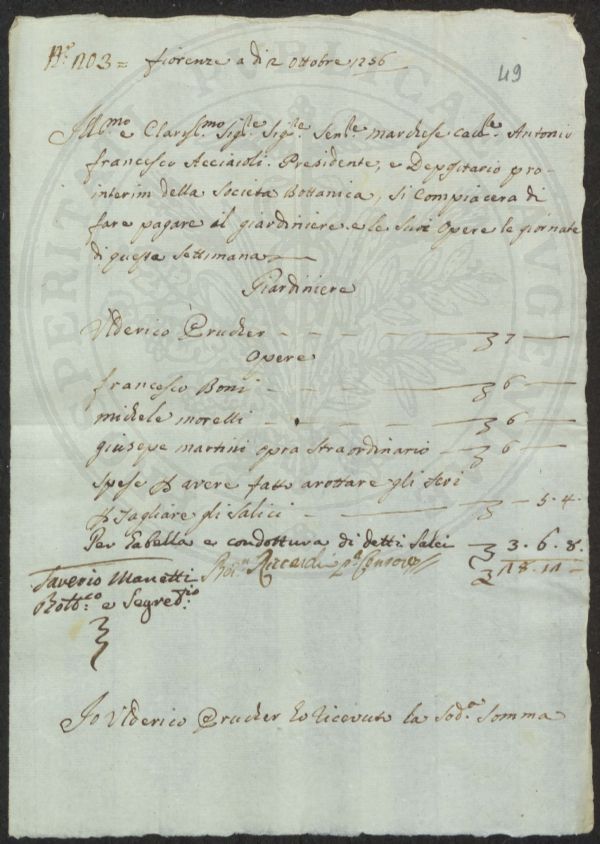 N.º 1203 = fiorenze a dì 2 Ottobre 1756
49
Ill.mo e Claris.mo Sig.re Sig.re Sen.re Marchese Cav.re Antonio
francesco Acciaioli. Presidente, e Depositario pro-
interim della Società Bottanica, Si Compiacera di
fare pagare il giardiniere e le Sue Opere le giornate
di questa Settimana
Giardiniere
Ulderico Prucher 7
Opere
francesco Boni 6
michele morelli 6
giusepe martini opra straordinario 6
spese p avere fatto arottare gli feri
p Tagliare gli Salici 5. 4.
Per Gabella e condottura di detti Salci 3. 6. 8.
Saverio Manetti
Ricardi Censore 18. 11
Bott.co e Segret.rio
Io Ulderico Prucher ho ricevuto la Sod.a Somma